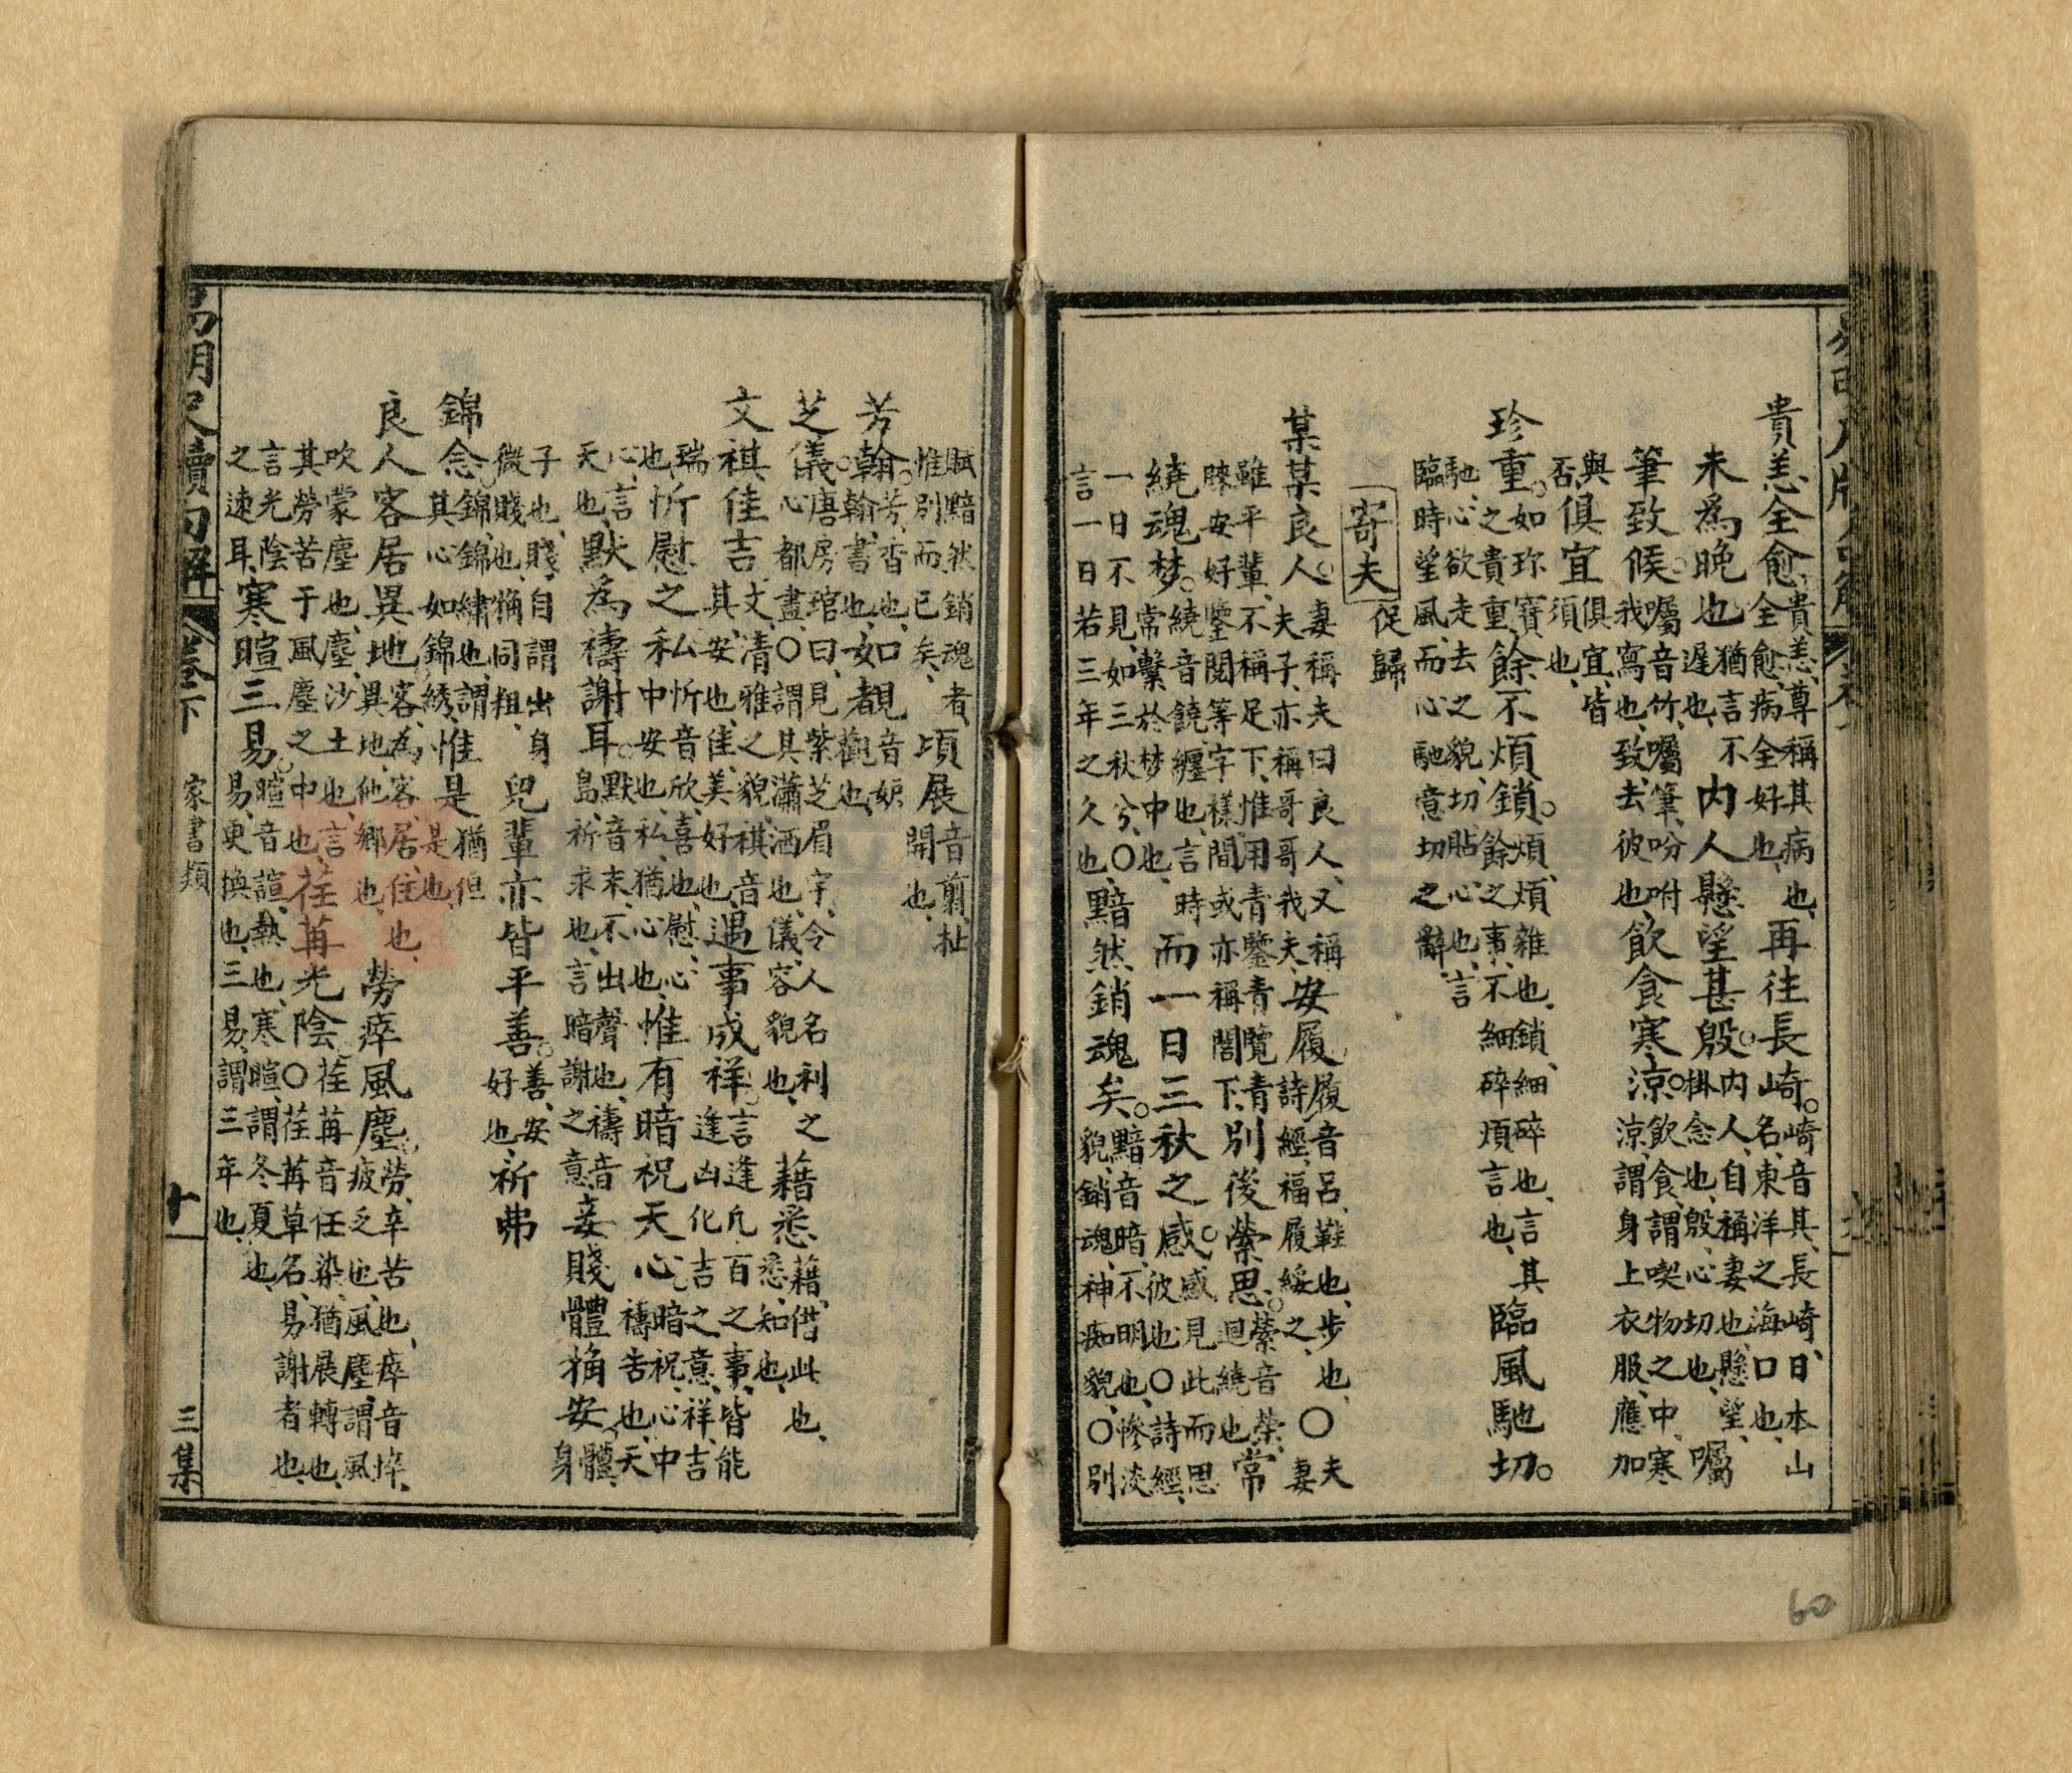 貴恙全愈、貴恙、尊稱其病也、全愈、病全好也、再往長崎。崎音其、長崎、日本山名、東洋之海口也、
未為晚也猶言不遲也、內人懸望甚殷。內人、自稱妻也、懸望、掛念也、殷、心切也、囑
筆致候。囑音竹、囑筆、吩咐我寫也、致、去彼也、飲食寒涼。飲食、謂喫物之中、寒涼、謂身上衣服、應加
與否、俱宜俱宜、皆須也、
珍重。如珎寶之貴重、餘不煩鎖。煩、煩雜也、鎖、細碎也、言其餘之事、不細碎煩言也、臨風馳切。
馳、心欲走去之貌、切、貼心也、言臨時望風而心馳意切之辭、
寄夫 促歸
某某良人。妻稱夫曰良人、又稱夫子、亦稱哥哥我夫、安履履音呂、鞋也、步也、〇夫詩經、福履綏之、〇妻
雖平輩、不稱足下、惟用青鑒青覽青睞安好鑒閱等字樣、間或亦稱閤下、別後縈思。縈音榮、迴繞也常
繞魂梦。繞音饒、纏也、言時常繫於梦中也、而一日三秋之感。感見此而思彼也〇詩經、
一日不見、如三秋兮、〇言一日若三年之久也、黯然銷魂矣。黯音暗、不明也、惨淡貌、銷魂、神痴貌、〇別
賦黯然銷魂者、惟別而已矣、頃展音剪、扯開也、
芳翰。芳、香也、翰、書也、如覩音妬觀也、
芝儀。唐房琯曰、見紫芝眉宇、令人名利之心都盡、〇謂其瀟洒也、儀、容貌也、藉悉藉、借此也、悉、知也、
文祺佳吉文、清雅之貌、祺音其、安也、佳、美好也、遇事成祥。言逢凡百之事、皆能逢凶化吉之意、祥、吉
瑞也、忻慰之私忻音欣、喜也、慰、心中安也、私、猶心也、惟有暗祝天心暗祝、心中禱告也、天
心、言天也、默為禱謝耳。默音末、不出聲也、禱音島、祈求也、言暗謝之意、妾賤體桷安、體、身
子也、賤、自謂出身微賤也、桷同粗、兒輩亦皆平善。善、安好也、祈弗
錦念。錦、錦繡也、謂其心如錦綉、惟是猶但是也、
良人客居異地。客、為客、居、住也、異地、他鄉也、勞瘁風塵勞、辛苦也、瘁音悴、疲乏也、風塵、謂風
吹蒙塵也、塵、沙土也、言其勞苦于風塵之中也、荏苒光陰〇荏苒音任染、猶展轉也、荏苒草名、易謝者也、
言光陰之速耳、寒暄三易。暄音諠、熱也、寒暄、謂冬夏也、易、更換也、三易、謂三年也、
易明尺牘句解 卷下 家書類 十 三集
60